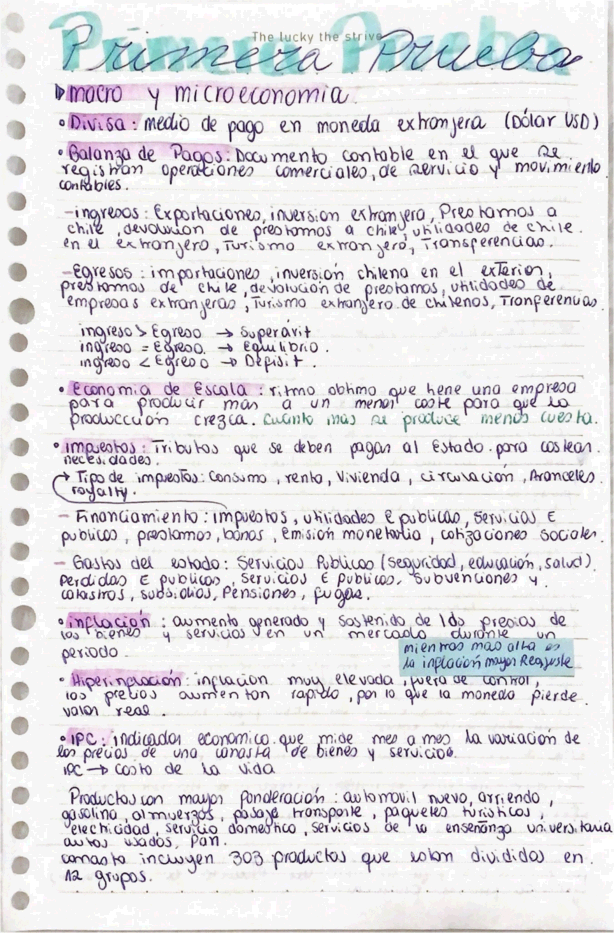 The lucky the strive
Primera Prueba
macro y microeconomia
• Divisa: medio de pago en moneda extranjera (Dólar USD)
• Balanza de Pagos: Documento contable en el que se
registran operaciones comerciales, de servicio y movimiento
contables.
-ingresos: Exportaciones, inversion extranjera, Prestamos a
chile, devolucion de prestamos a chile, utilidades de chile
en el extranjero, Turismo extranjero, Transferencias.
-Egresos: importaciones, inversión chilena en el exterior,
prestamos de chile, devolución de prestamos, utilidades de
empresas extranjeras, Turismo extranjero de chilenos, Tranferencias.
ingreso > Egreso → Superávit
ingreso = Egreso. → Equilibrio.
ingreso < Egreso → Défisit.
• Economia de Escala: ritmo obtimo que tiene una empresa
para producir mas a un menor coste para que la
producción crezca. cuanto mas se produce menos cuesta.
• impuestos: Tributos que se deben pagar al Estado. para costear.
necesidades.
→ Tipo de impuestos: Consumo, renta, Vivienda, circulación, Aranceles.
royalty.
- Financiamiento: impuestos, utilidades E publicas, Servicios E
publicos, prestamos, bonos, Emisión monetaria, cotizaciones sociales.
- Gastos del estado: Servicios Publicos (Seguridad, educación, salud).
Perdidas E publicas, Servicios E publicos, Subvenciones y.
catastros, subsidios, Pensiones, fugas.
• inflación: aumento generado y sostenido de los precios de
los bienes y servicios en un mercado durante un
periodo.
mientras mas alta es
la inflación mayor Reajuste
• Hiperinflación: inflación muy elevada, fuera de control,
los precios aumentan rapido, por lo que la moneda pierde.
valor real.
• IPC: indicador economico que mide mes a mes la variación de
los precios de una canasta de bienes y servicios.
IPC → Costo de la vida
Productos con mayor Ponderación: automovil nuevo, arriendo,
gasolina, almuerzos, pasaje transporte, paquetes turísticos,
electricidad, servicio domestico, servicios de la enseñanza universitaria
autos usados, Pan.
canasta incluyen 303 productos que estan divididos en.
12 grupos.